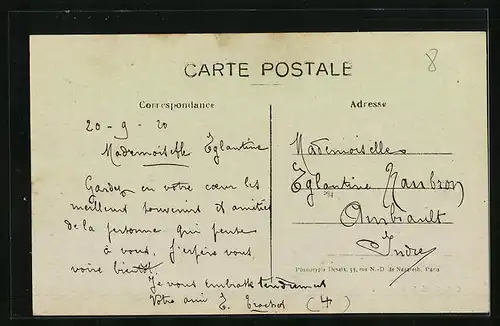 8
CARTE POSTALE
Correspondance
Adresse
20-9-20
Mademoiselle Eglantine
Gardez en votre cœur les
meilleurs souvenirs et amitiés
de la personne qui pense
à vous. J'espère vous
voire bientôt.
Je vous embrasse tendrement
Votre ami E.
(4)
Mademoiselle
Eglantine
Ambrault
Indre
Phototypie Desaix, 54, rue N.-D. de Nazareth, Paris